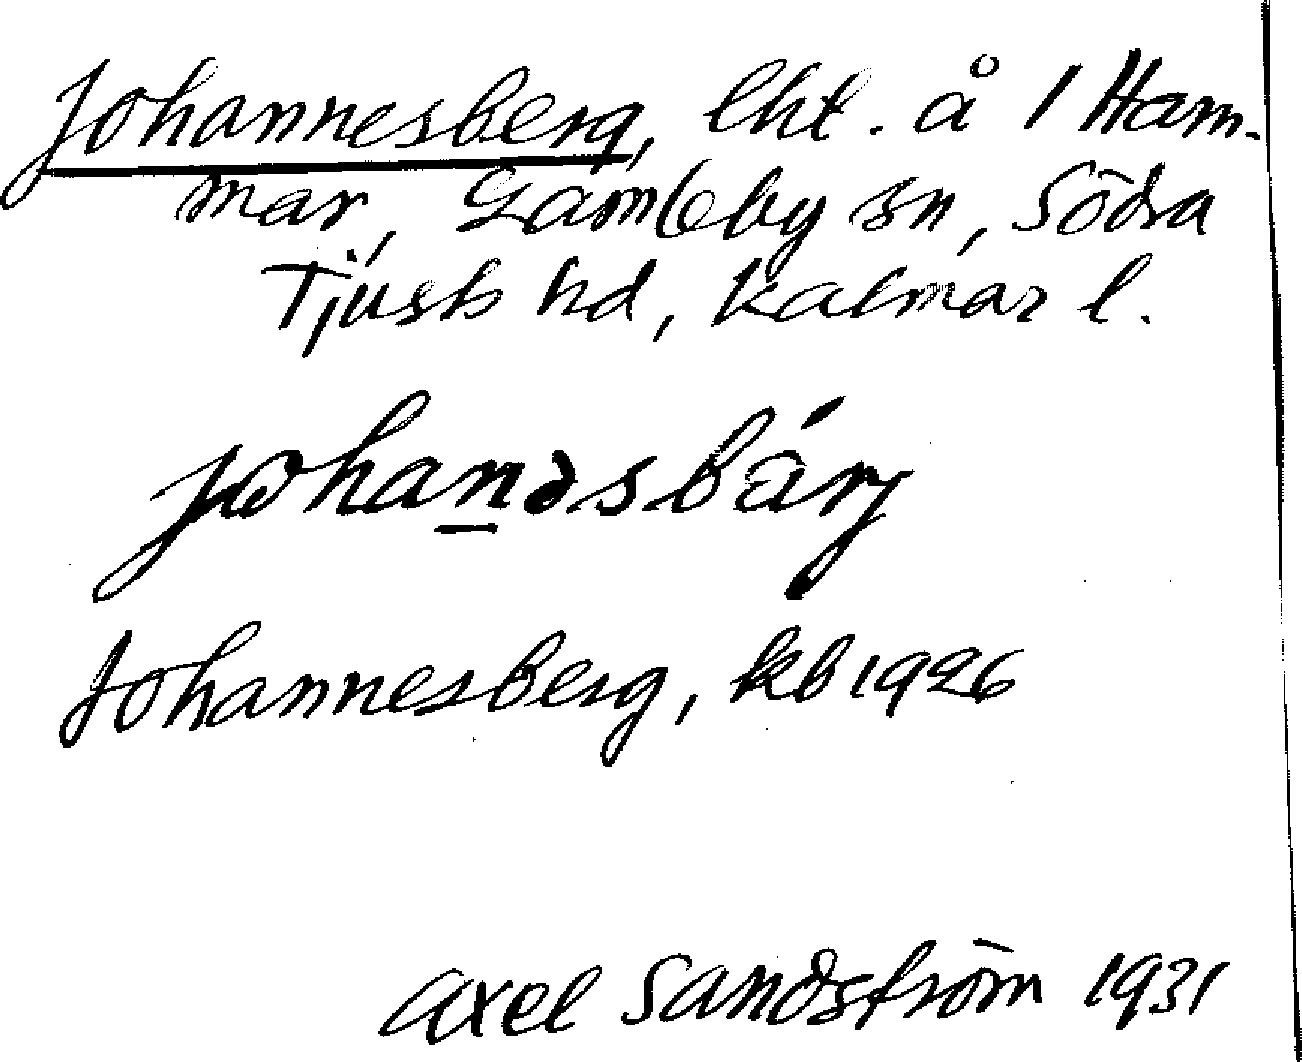 Johannesberg, lht. å 1 Ham-
mar, Gamleby sn, Södra
Tjusts hd, Kalmar l.
johanəsbárj
Johannesberg, kb 1926
Axel Sandström 1931